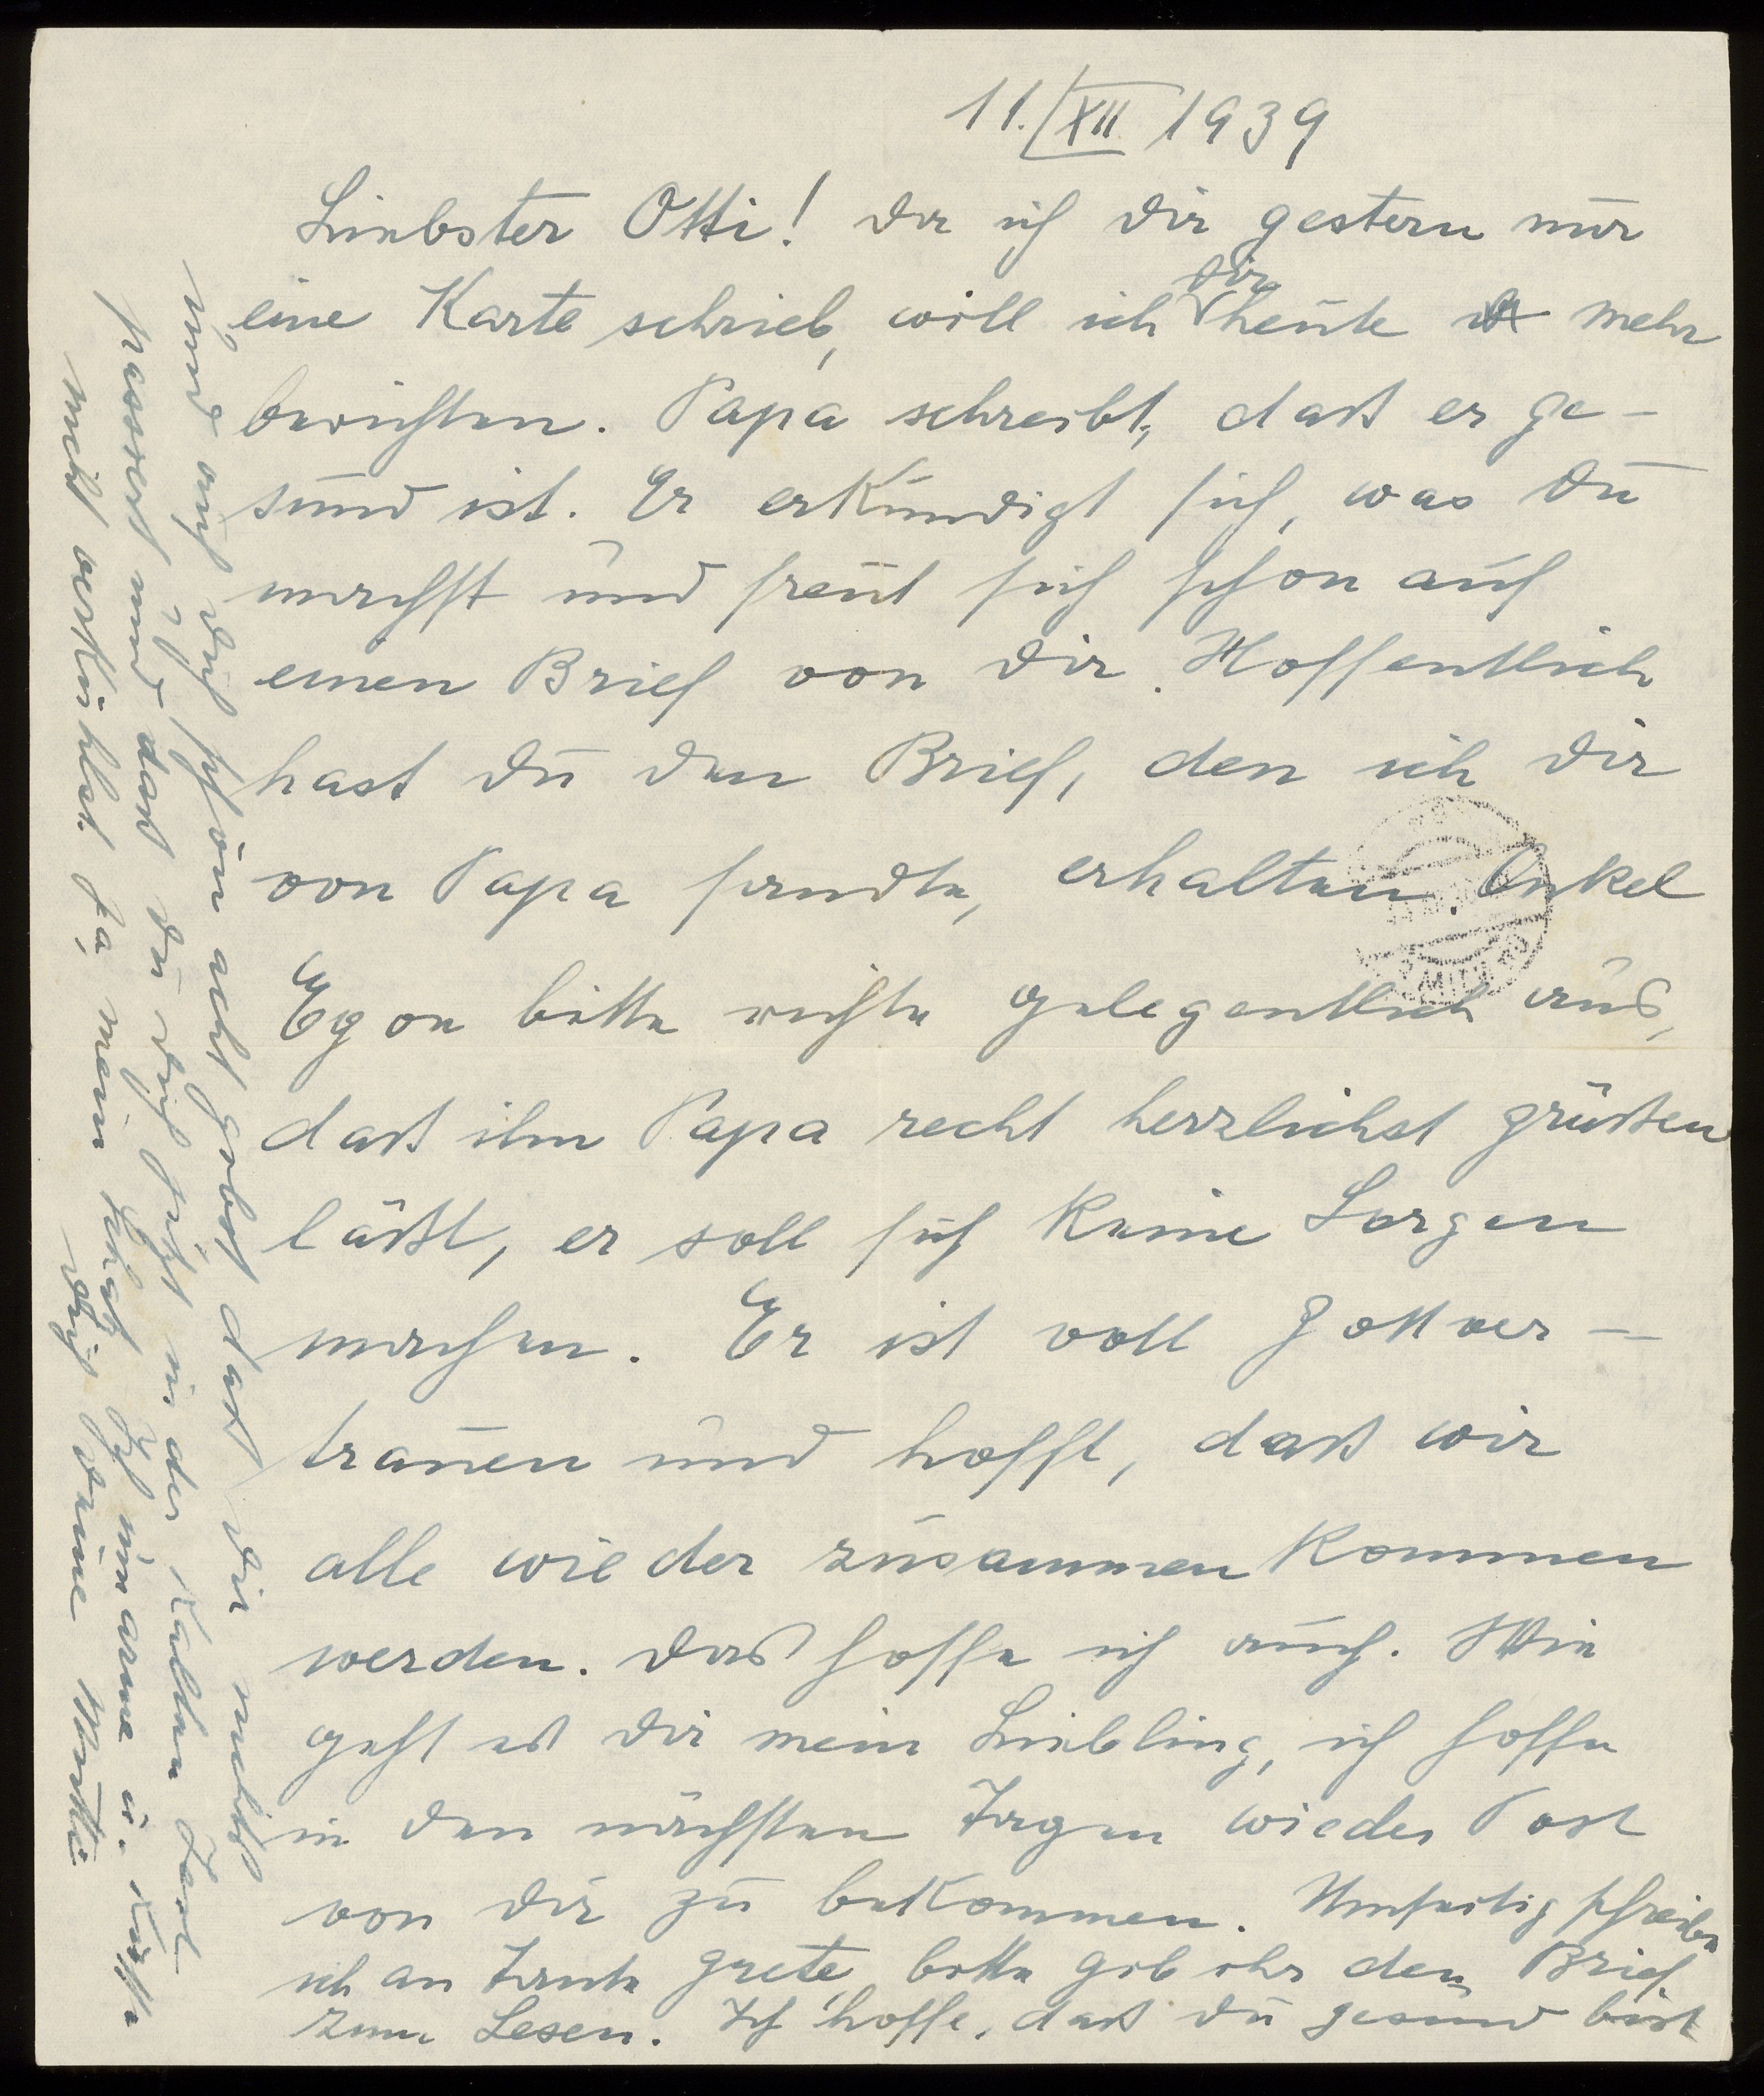 11. XII 1939
Liebster Otti! Da ich Dir gestern nur
eine Karte schrieb, will ich Dir heute mehr
berichten. Papa schreibt, daß er ge-
sund ist. Er erkundigt sich, was Du
machst und freut sich schon auf
einen Brief von Dir. Hoffentlich
hast Du den Brief, den ich Dir
von Papa sandte, erhalten. Onkel
Egon bitte richte gelegentlich aus,
daß ihm Papa recht herzlichst grüßen
läßt, er soll sich keine Sorgen
machen. Er ist voll Gottver-
trauen und hofft, daß wir
alle wieder zusammen kommen
werden. Das hoffe ich auch. Wie
geht es Dir mein Liebling, ich hoffe
in den nächsten Tagen wieder Post
von Dir zu bekommen. Umseitig schreibe
ich an Tante Grete, bitte gib ihr den Brief
zum Lesen. Ich hoffe, daß Du gesund bist
und auf Dich schön acht gebst daß Dir nichts
passiert und daß Du Dich jetzt in der kalten Zeit
nicht verkühlst ja mein Schatz Ich umarme u. küsse
Dich Deine Mutti